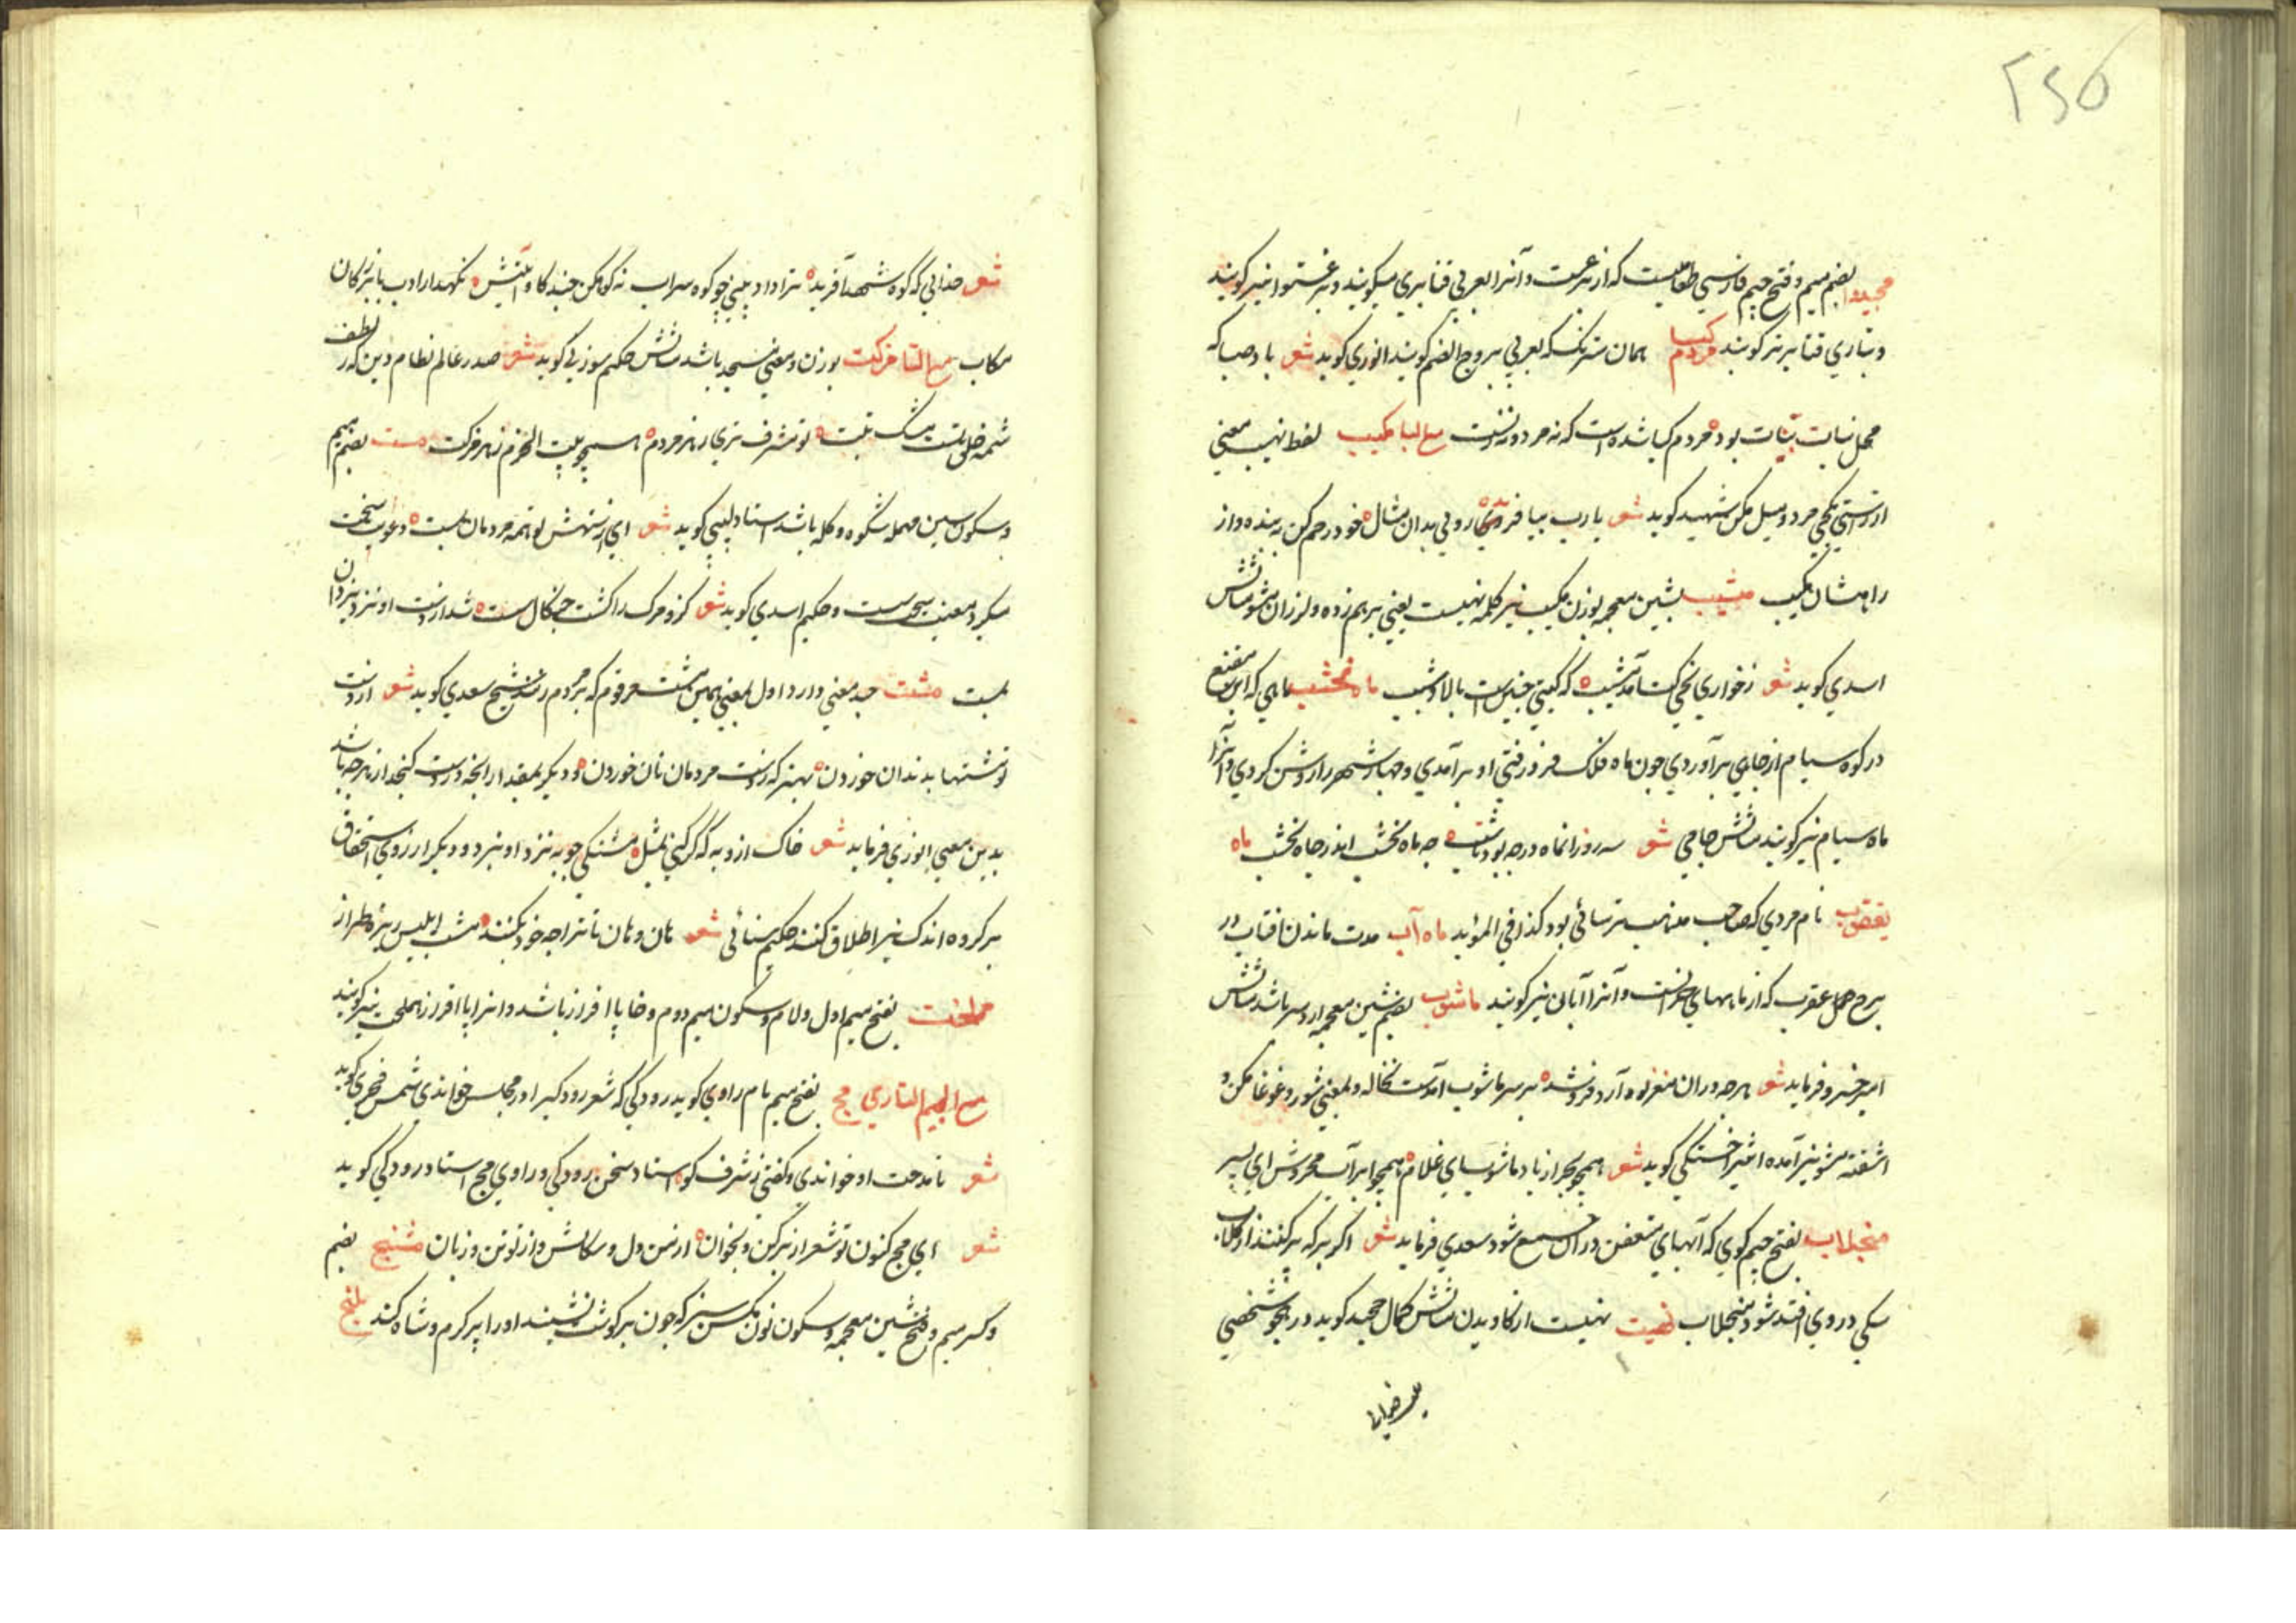 ۲۵۵
بضم میم و فتح جیم فارسی طعامیست که از و آنرا بعربی قنابری میگویند و برغستو نیز گویند
و بتازی قنابر نیز گویند مردم گیا همان سترنگ که بعربی یبروج الصنم گویند انوری گوید شعر باد صبا که
محل نبات بنات بود مردم گیا شده است که نه مرد و نه زنست مع البا مکیب لفظ نهیست یعنی
از راستی کجی مرد و میل مکن شهید گوید شعر یا رب بیافریدی رویی بدان مثال خود رحم کن به بنده و از
راه مشان مکیب مشیب بشین معجمه بوزن مکیب نیز کلمه نهیست یعنی برهم زده و لرزان مشو مثالش
اسدی گوید شعر ز خواری کجی کت آمد مشیب که گیتی چنین است بالا و شیب ماه نخشب ماهی که ابن مقنع
در کوه سیام از چاهی برآوردی چون ماه فلک فرو رفتی او برآمدی و چهار شهر را روشن کردی و آنرا
ماه سیام نیز گویند مثالش جامی شعر سه روز انماه در چه بود تا شب چه ماه نخشب اندر چاه نخشب ماه
یعقوب نام مردی که صاحب مذهب ترسائی بود کذا فی المؤید ماه آب مدت ماندن افتاب در
برج عقرب که از ماههای خزانست و آنرا آبان نیز گویند ماشوب بضم شین معجمه اردبیز باشد مثالش
امیر خسرو فرماید شعر هرچه دران مغز له آرد فروشد بر سر ماشوب آمدست نخاله و بمعنی شور و غوغا مکن و
اشفته مشو نیز آمده اثیر اخسیکتی گوید شعر همچو بحر از باد ماشوب ای غلام همچو ابر آب مخروش ای پسر
منجلاب بفتح جیم گوی که آبهای متعفن در آن جمع شود سعدی فرماید شعر اگر برکه پر کنند از گلاب
سگی در وی افتد شود منجلاب نهیست از کاویدن مثالش کمال گوید در هجو شخصی
شعر خدائی که کوه شهدا آفرید ترا داد بینی چو کوه سراب نه کوهکن چند کاویش نگهدار ادب با بزرگان
مکاب مع التا مزکت بوزن و معنی مسجد باشد مثالش حکیم سوزنی گوید شعر صدر عالم نظام دین که ز لطف
شمه خلق تست مشک تبت تو شرف همچو بیت الحرم ز هر مزکت مست بضم میم
و سکون سین مهمله شکوه و گله باشد استاد لبیبی گوید شعر ای از ستیهش تو همه مردمان بمست دعویت
میکرد معنیت سست و حکیم اسدی گوید شعر کزو مرگ را گشت چنگال سست شد از دست او نزد یزدان
بمست مشت چند معنی دارد اول بمعنی همین مشت معروفم که بر مردم زنند شیخ سعدی گوید شعر از دست
تو مشتها بدندان خوردن بهتر که ز دست مردمان نان خوردن و دیگر بمقدار آنچه در دست گنجد از هرچه باشد
بدین معنی انوری فرماید شعر خاک ازو به که گر کنی بمثل مشتکی جو به نزد او نبرد و دیگر از روی استحقاق
بر گروه اندک نیز اطلاق کنند حکیم سنائی شعر هان و هان تا ترا چه خود نکنند مشت ابلیس ریزه طرار
مملخت بفتح میم اول و لام و سکون میم دوم و خا پا افراز باشد و آنرا پا افزار هملخت نیز گویند
مع الجیم التازی مج بفتح میم نام راوی گوید رودکی که شعر رودکی را در مجلس خواندی شمس فخری گوید
شعر تا مدحت او خواندی و گفتی ز شرف کو استاد سخن رودکی و راوی مج استاد رودکی گوید
شعر ای مج کنون تو شعر از بر کن و بخوان از من دل و سگالش و از تو تن و زبان مشنج بضم
و کسر میم و فتح شین معجمه و سکون نون مگس سبز که چون بر گوشت نشیند او را پر کرم و تباه کند